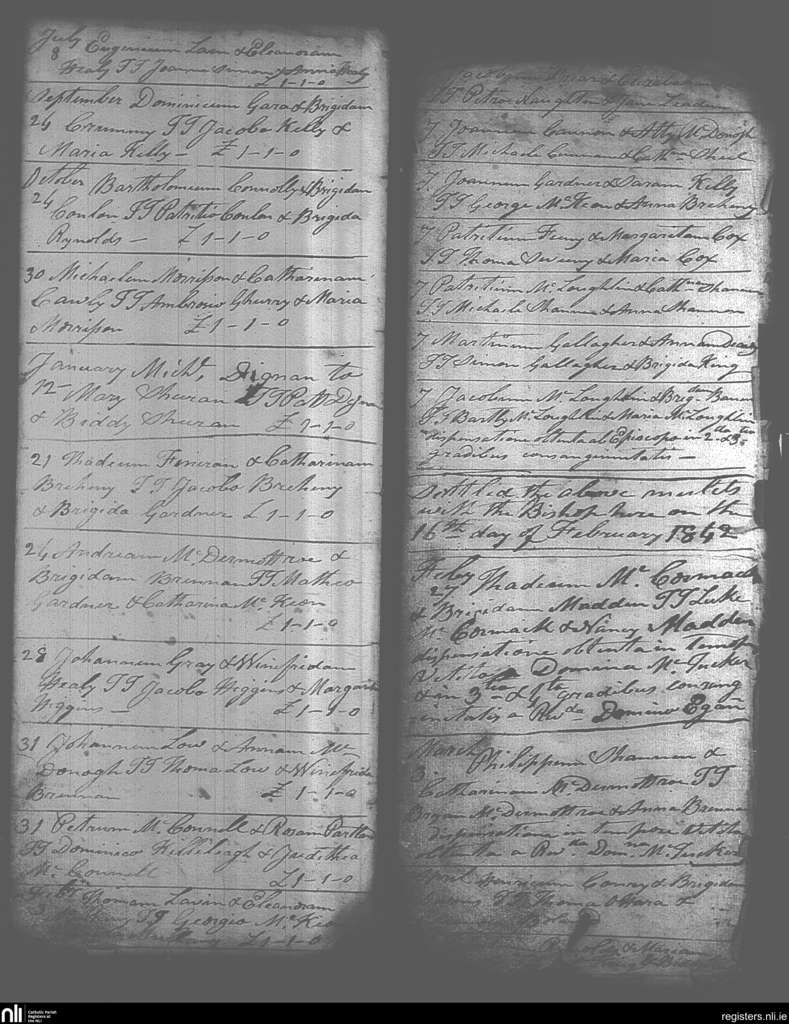 July Eugenium Lavin & Eleanoram
8 Healy TT Joanne & Anna Healy
£1-1-0
September Dominicum Gara & Brigidam
24 Crummy TT Jacobo Kelly &
Maria Kelly – £1-1-0
October Bartholomeum Connolly & Brigidam
24 Conlon TT Patritio Conlon & Brigida
Rynolds – £1-1-0
30 Michaelem Morrisson & Catharinam
Cawly TT Ambrosio Gherry & Maria
Morrisson £1-1-0
January Michl. Dignan to
12 Mary Shuran TT Patt Dignan
& Biddy Shuran £1-1-0
21 Thadeum Fineran & Catharinam
Breheny TT Jacobo Breheny
& Brigida Gardner £1-1-0
24 Andream McDermottroe &
Brigidam Brennan TT Matheo
Gardner & Catharina Mc Keon
£1-1-0
28 Johannem Gray & Winefridam
Healy TT Jacobo Higgins & Margarita
Higgins – £1-1-0
31 Johannem Low & Annam Mc
Donogh TT Thoma Low & Winefrida
Brennan £1-1-0
31 Petrum Mc Connell & Rosam Partlan
TT Dominico & Judithea
Mc Connell £1-1-0
Thomam Lavin & Eleanoram
TT Georgio Mc Keon
£1-1-0
TT Petro Naughten & Jane Leadum
7 Joannem Cannon & Atty McDonogh
TT Michaele & Cathne
7 Joannem Gardner & Saram Kelly
TT George McKeon & Anna Breheny
7 Patritium Feeny & Margaritam Cox
TT Thoma & Maria Cox
7 Patritium McLoughlin & Shannon
TT Michaele Shannon & Anna Shannon
7 Martinum Gallagher & Annam
TT Simon Gallagher & Brigida King
7 Jacobum McLoughlin & Brigtam
Bartly McLoughlin & Maria McLoughlin
dispensatione obtenta ab Episcopo in 2 & 3
gradibus consanguinitatis –
Settled the above
with the Bishop here on the
16th day of February 1842
Feby Thadeum Mc Cormack
27 & Brigidam Madden TT Luke
McCormack & Nancy Madden
dispensatione obtenta in temp
vetito a Domino McTucker
& in 3tio & 4to gradibus consang
uinitatis a Revdo Domino Egan
March Philippum Shannon &
3 Catharinam McDermottroe TT
Bryan McDermottroe & Anna Brennan
dispensatione in tempore vetito
obtenta a Revdo Domno McTucker
Henricum Conry & Brigidam
TT Thoma O Hara &
& Mariam
nli
Catholic Parish
Registers at
the NLI
registers.nli.ie